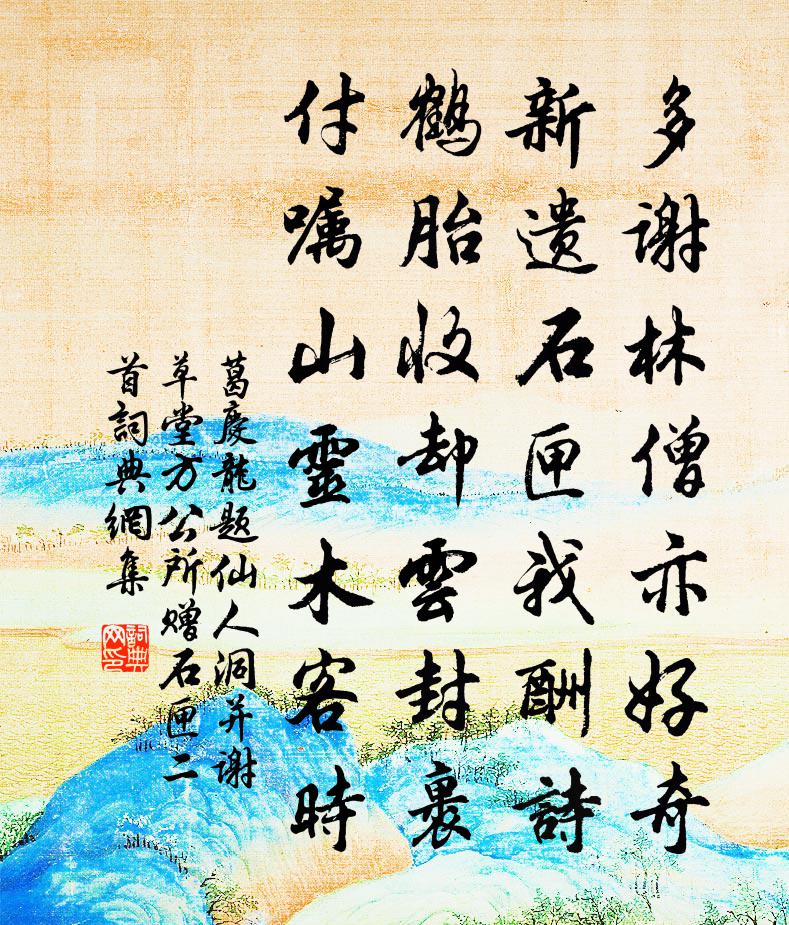 多谢林僧亦好奇
新遗石匣我酬詩
鶴胎收却雲封裹
付嘱山靈木客時
葛慶龍题仙人洞并谢
草堂方公所赠石匣二
首詞典網集
詞典
网印